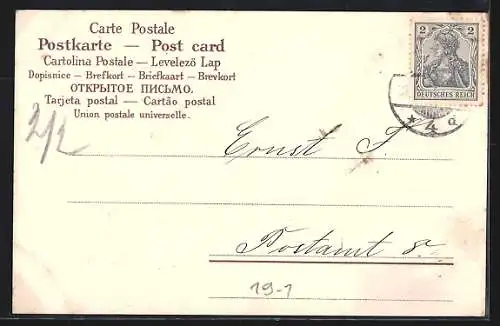 Carte Postale
Postkarte — Post card
Cartolina Postale — Levelező Lap
Dopisnice — Brefkort — Briefkaart — Brevkort
ОТКРЫТОЕ ПИСЬМО.
Tarjeta postal — Cartão postal
Union postale universelle.
2 2
DEUTSCHES REICH
* 4 a
2/2
Ernst F.
Postamt 8.
19-1